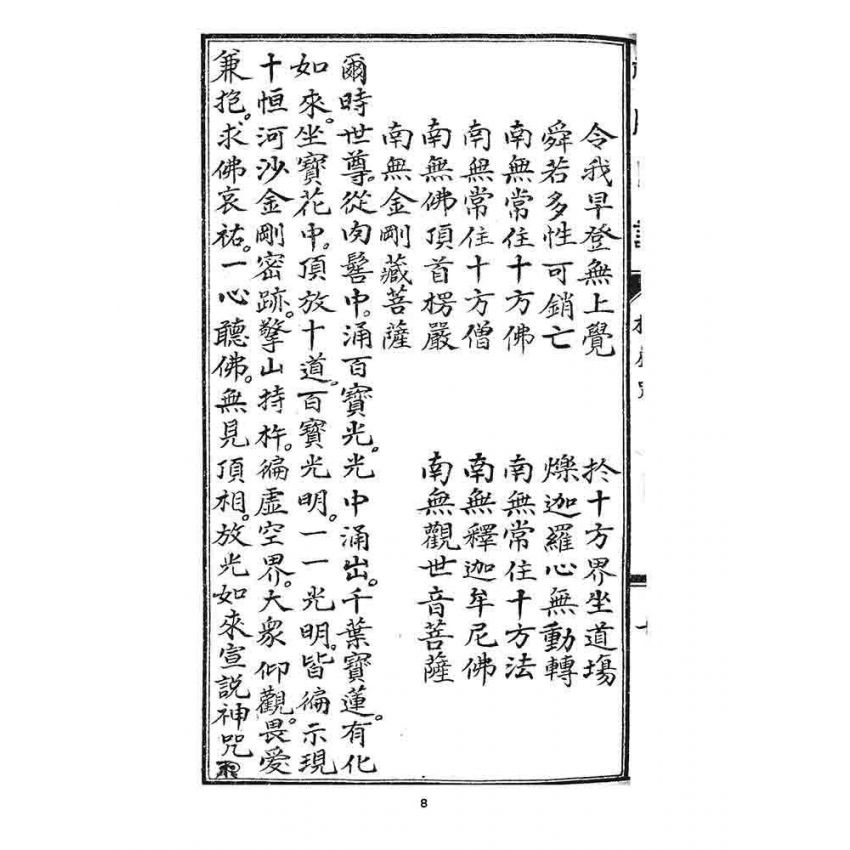 令我早登無上覺　於十方界坐道場
舜若多性可銷亡　爍迦羅心無動轉
南無常住十方佛　南無常住十方法
南無常住十方僧　南無釋迦牟尼佛
南無佛頂首楞嚴　南無觀世音菩薩
南無金剛藏菩薩
爾時世尊。從肉髻中。涌百寶光。光中涌出。千葉寶蓮。有化
如來。坐寶花中。頂放十道。百寶光明。一一光明。皆徧示現
十恒河沙金剛密跡。擎山持杵。徧虛空界。大衆仰觀。畏愛
兼抱。求佛哀祐。一心聽佛。無見頂相。放光如來宣説神咒
8